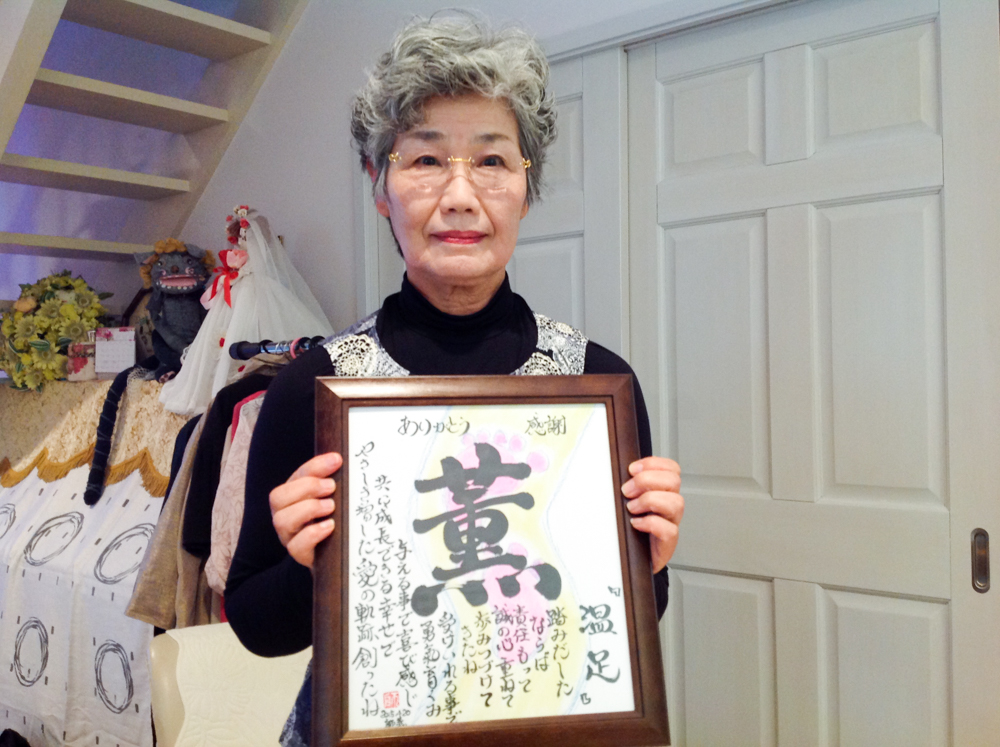 ありがとう 感謝
薫
『温足』
踏みだした
ならば
責任もって
誠の心重ねて
歩みつづけて
きたね
受けいれる事で
勇氣育くみ
与える事で喜び感じ
共に成長できる幸せで
やさしさ増した愛の軌跡創ったね